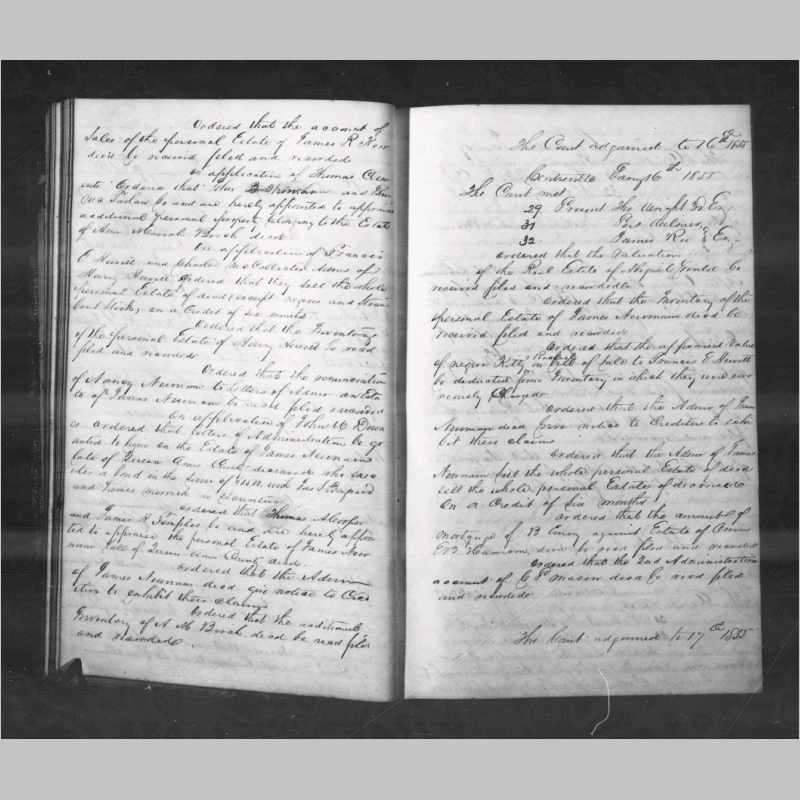 Ordered that the account of
Sales of the personal Estate of James R Kerr
decd be received filed and recorded
On application of Thomas
Ordered that and John
be and are hereby appointed to appraise
additional personal property belonging to the Estate
of Ann Mariah Burch decd
On application of Francis
E Hewitt and Charles McCollister Admrs of
Henry Hewitt Ordered that they sell the whole
personal Estate of deceased except negroes and
on a Credit of six months
Ordered that the Inventory
of the personal Estate of Henry Hewitt be read
filed and recorded
Ordered that the renunciation
of Nancy Newnam to letters of Admr on Esta
te of James Newnam be read filed & recorded
On application of John W Down
is ordered that letters of Administration be gr
anted to him on the Estate of James Newnam
late of Queen Anns County deceased who have
a bond in the Sum of with
and James Merrick as Securities
ordered that Thomas A Cooper
and James H Temples be and are hereby appoin
ted to appraise the personal Estate of James New
nam late of Queen Ann County decd.
ordered that the Admr
of James Newnam decd give notice to Cred
itors to exhibit their claims
Ordered that the additional
Inventory of A M Burch decd be read filed
and recorded.
The Court adjourned to 16th 1855
Centreville Jany 16th 1855
The Court met
29 Present Tho Wright
31
32 James
ordered that the Valuation
of the Real Estate of be
received filed and recorded
Ordered that the Inventory of the
personal Estate of James Newnam decd be
received filed and recorded
Ordered that the appraised Value
of negroe Kitty in bill of Sale to Francis E Hewitt
be deducted from Inventory in which they were erro
neously Charged
Ordered that the Admr of James
Newnam decd give notice to Creditors to exhi
bit their claims
Ordered that the Admr of James
Newnam sell the whole personal Estate of decd
sell the whole personal Estate of deceased
On a Credit of Six months
ordered that the amount of
mortgage of B against Estate of
Harrison, decd be read filed and recorded
Ordered that the 2nd Administration
account of C P Mason decd be read filed
and recorded
The Court adjourned to 17th 1855